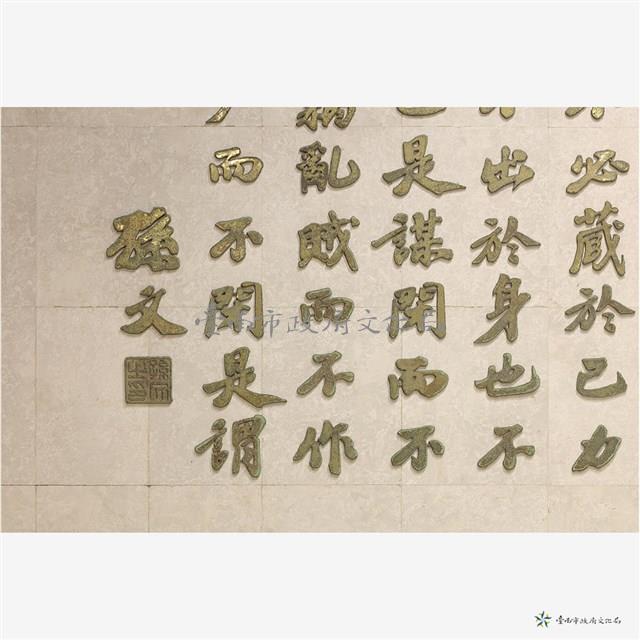 必藏於己力
出於身也不
是謀閉而不
亂賊而不作
而不閉是謂
孫文
孫文之印
臺南市政府文化局
臺南市政府文化局